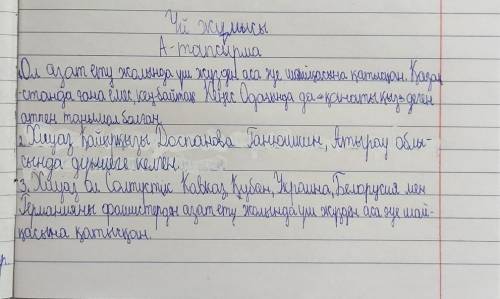 Үй жұмысы
А-тапсырма
1.Ол азат ету жолында үш жүзден аса әуе шайқасына қатысқан. Қазақ
-станда ғана емес, кең байтақ Кеңес Одағында да «қанатты қыз» деген
атпен танымал болған.
2. Хиуаз Қайырқызы Доспанова Ганюшкин, Атырау облы-
сында дүниеге келген.
3. Хиуаз ол Солтүстік Кавказ, Кубан, Украина, Белорусия мен
Германияны фашистерден азат ету жолында үш жүзден аса әуе шай-
қасына қатысқан.